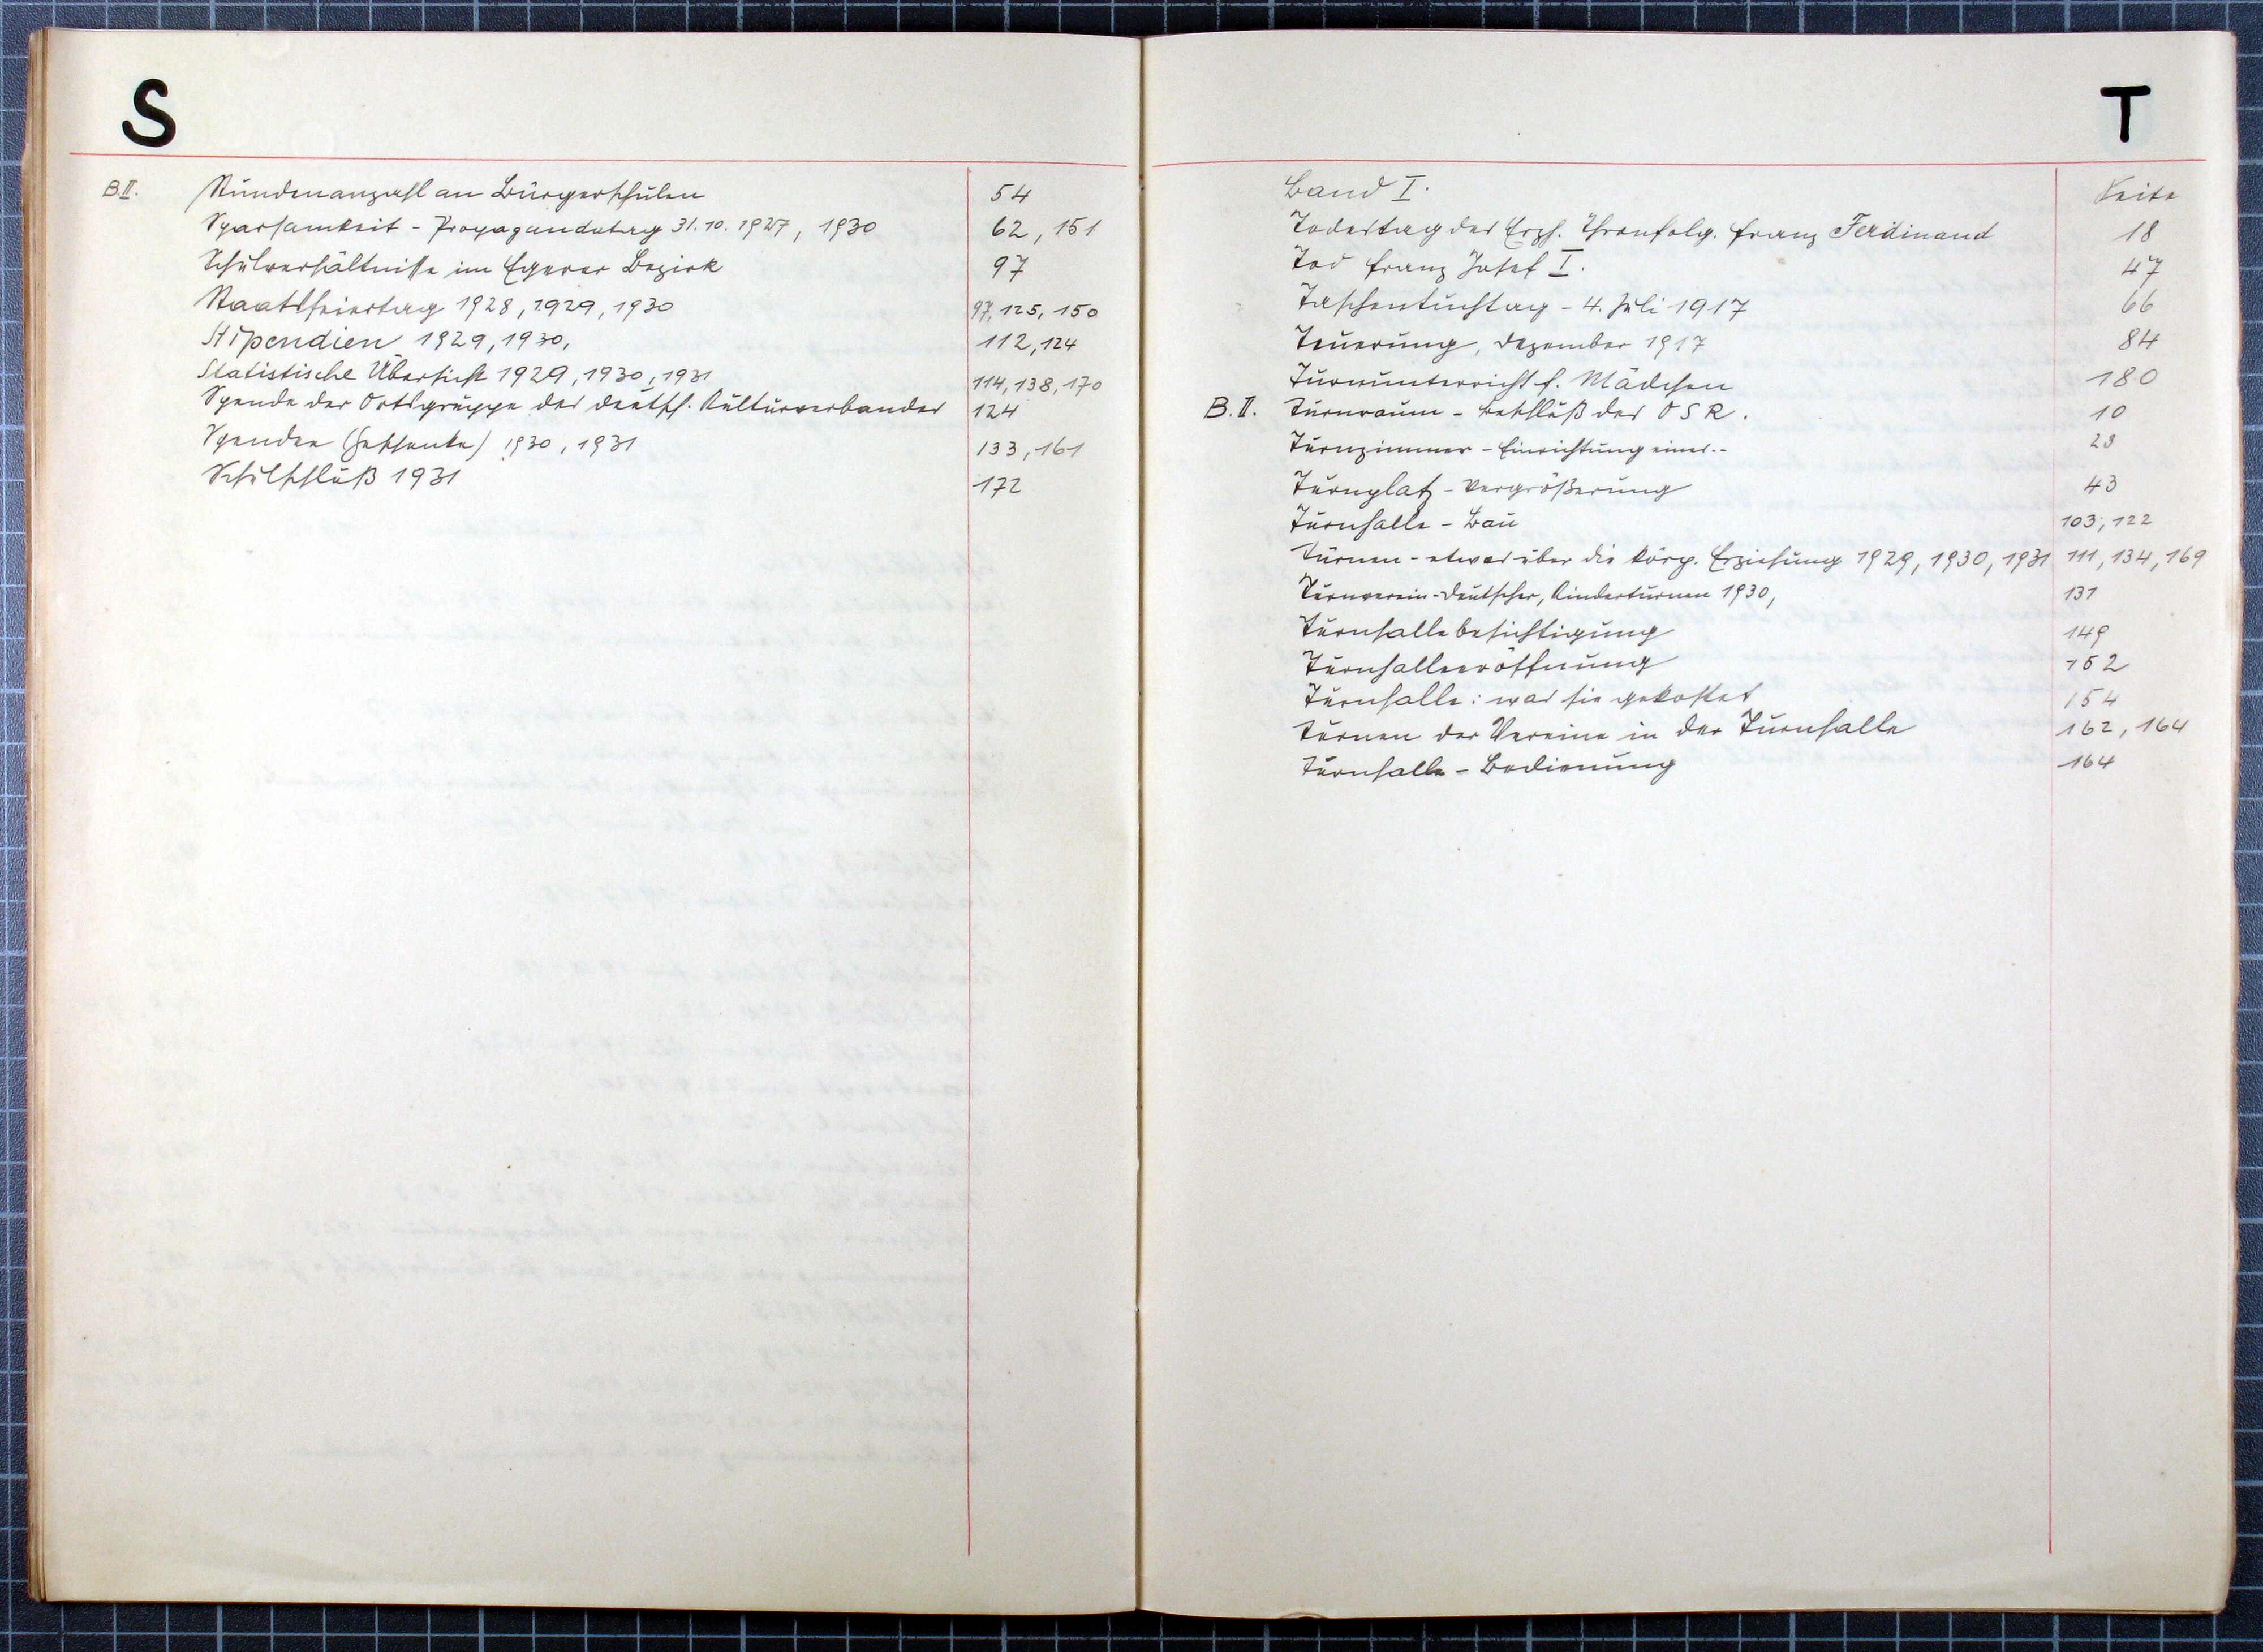 S
B.II. Stundenanzahl an Bürgerschulen 54
Sparsamkeit - Propagandatag 31.10.1927, 1930 62, 151
Schulverhältnisse im Egerer Bezirk 97
Staatsfeiertag 1928, 1929, 1930 97, 125, 150
Stipendien 1929, 1930, 112, 124
Statistische Übersicht 1929, 1930, 1931 114, 138, 170
Spende der Ortsgruppe des deutsch. Kulturverbandes 124
Spenden (Geschenke) 1930, 1931 133, 161
Schulschluß 1931 172
T
Band I. Seite
Todestag des Erzh. Thronfolg. Franz Ferdinand 18
Tod Franz Josef I. 47
Taschentuchtag - 4. Juli 1917 66
Teuerung, Dezember 1917 84
Turnunterricht f. Mädchen 180
B.II. Turnraum - Beschluß des OSR. 10
Turnzimmer - Einrichtung eines.. 23
Turnplatz - Vergrößerung 43
Turnhalle - Bau 103, 122
Turnen - etwas über die körp. Erziehung 1929, 1930, 1931 111, 134, 169
Turnverein - Deutscher, Kinderturnen 1930, 131
Turnhallebesichtigung 149
Turnhalleeröffnung 152
Turnhalle: was sie gekostet 154
Turnen der Vereine in der Turnhalle 162, 164
Turnhalle - Bedienung 164